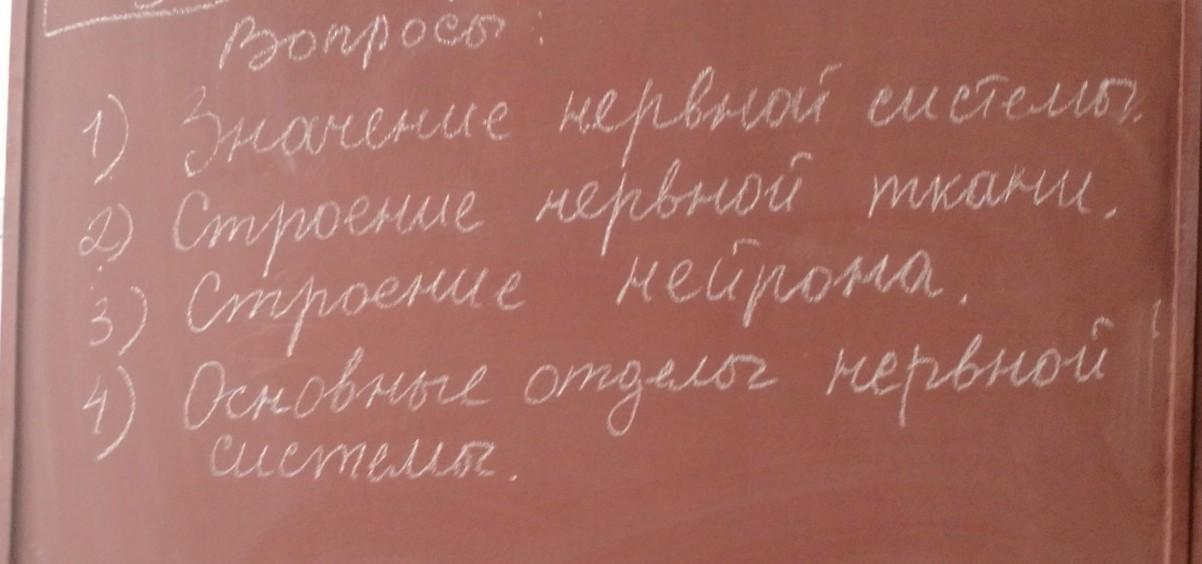 Вопросы:
1) Значение нервной системы.
2) Строение нервной ткани.
3) Строение нейрона.
4) Основные отделы нервной
системы.